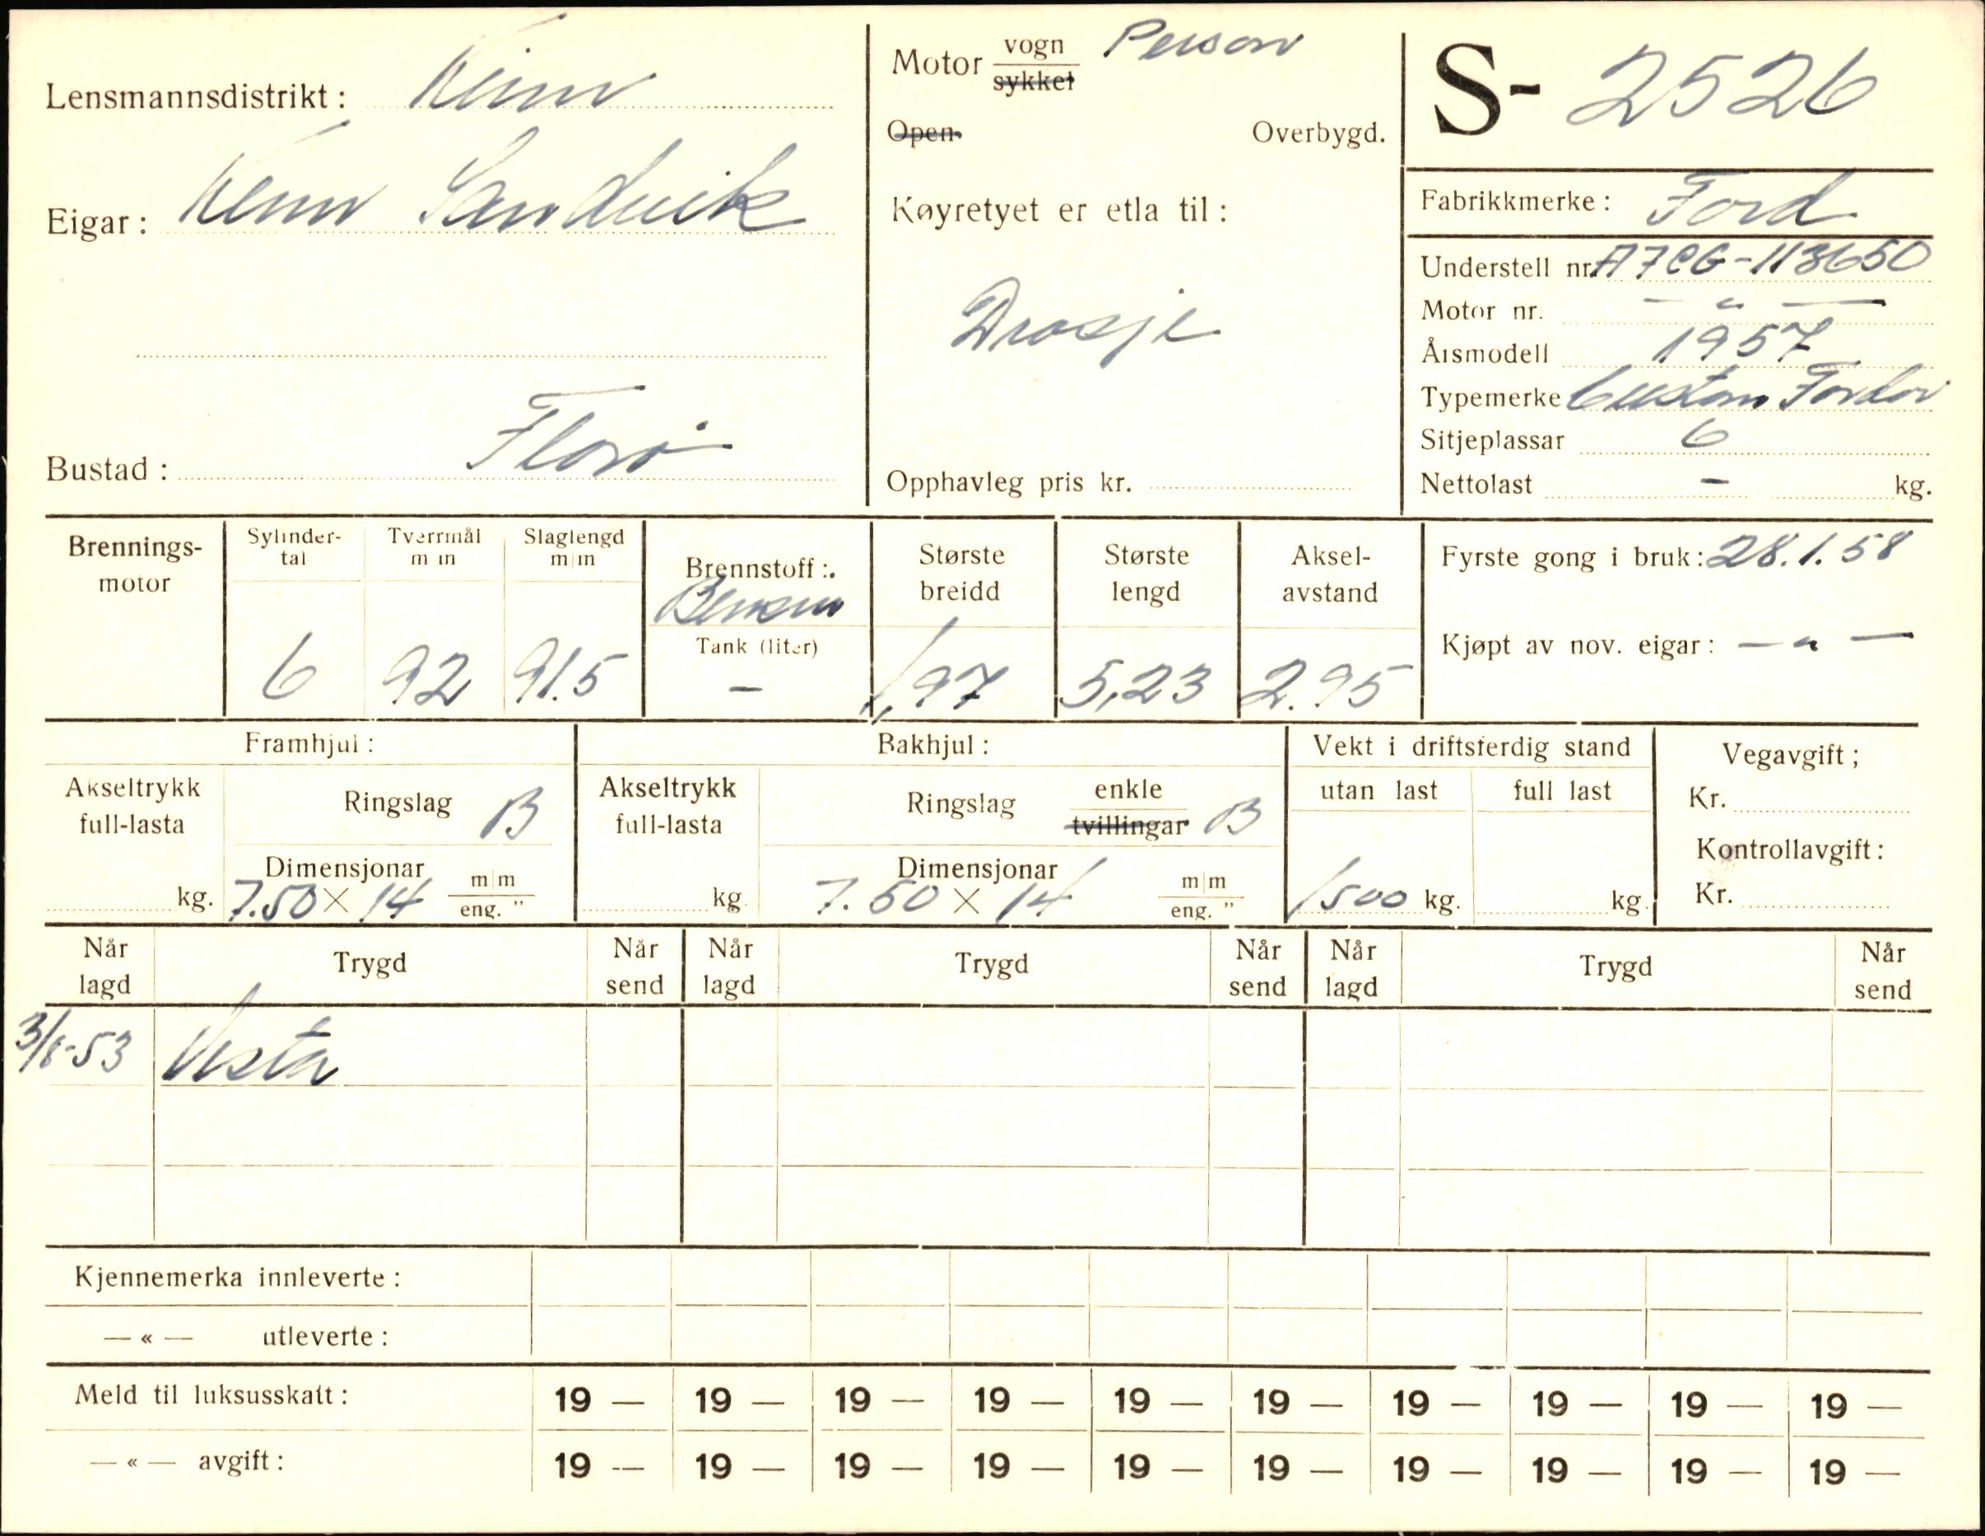 Lensmannsdistrikt: Kinn
Eigar: Sandvik
Florø
Bustad:
Motor vogn Person
sykkel
Open Overbygd.
Køyretyet er etla til:
Drosje
Opphavleg pris kr.
S- 2526
Fabrikkmerke: Ford
Understell nr. A7CG-113650
Motor nr. — " —
Årsmodell 1957
Typemerke Custom Fordor
Sitjeplassar 6
Nettolast - kg.
Brennings-motor
Sylinder-tal 6
Tverrmål m m 92
Slaglengd m m 91.5
Brennstoff: Bensin
Tank (liter) -
Største breidd 1,97
Største lengd 5,23
Aksel-avstand 2.95
Fyrste gong i bruk: 28.1.58
Kjøpt av nov. eigar: — " —
Framhjul:
Akseltrykk full-lasta kg.
Ringslag B
Dimensjonar 7.50 × 14 m|m eng. "
Bakhjul:
Akseltrykk full-lasta kg
Ringslag enkle tvillingar B
Dimensjonar 7.50 × 14 m|m eng. "
Vekt i driftsferdig stand
utan last 1500 kg.
full last kg.
Vegavgift;
Kr.
Kontrollavgift:
Kr.
Når lagd Trygd Når send Når lagd Trygd Når send Når lagd Trygd Når send
Vesta
Kjennemerka innleverte:
— « — utleverte:
Meld til luksusskatt: 19 — 19 — 19 — 19 — 19 — 19 — 19 — 19 — 19 — 19 —
— « — avgift: 19 — 19 — 19 — 19 — 19 — 19 — 19 — 19 — 19 — 19 —